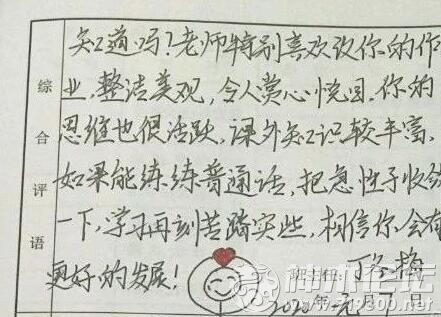 综合评语
知道吗?老师特别喜欢改你的作
业,整洁美观,令人赏心悦目.你的
思维也很活跃,课外知识较丰富,
如果能练练普通话,把急性子收敛
一下,学习再刻苦踏实些,相信你会有
更好的发展!
班主任:
2020年 月 日